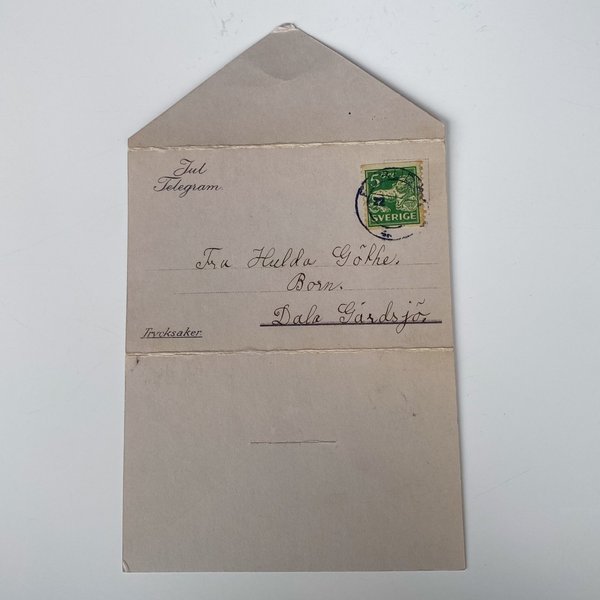 Jul
Telegram.
5 öre
SVERIGE
Fra Hulda Göthe.
Born.
Dala Gárdsjö.
Trycksaker.